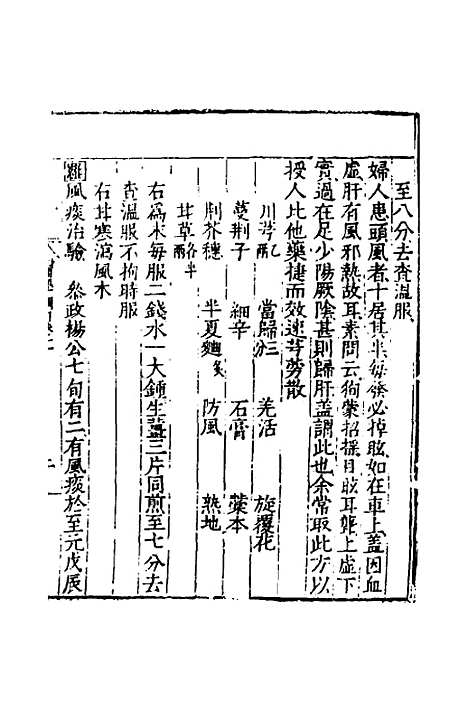 至八分去查溫服
婦人患頭風者十居其半每發必掉眩如在車上蓋因血
虛肝有風邪熱故耳素問云徇蒙招搖目眩耳聾上虛下
實過在足少陽厥陰甚則歸肝蓋謂此也余常取此方以
授人比他藥捷而效速芎勞散
川芎 當歸三分 羌活 旋覆花
蔓荆子 細辛 石膏 藁本
荆芥穗 半夏麯 防風 熟地
甘草
右爲末每服二錢水一大鍾生薑三片同煎至七分去
查溫服不拘時服
右甘寒瀉風木
羅風痰治驗 叅政楊公七旬有二有風痰於至元戊辰